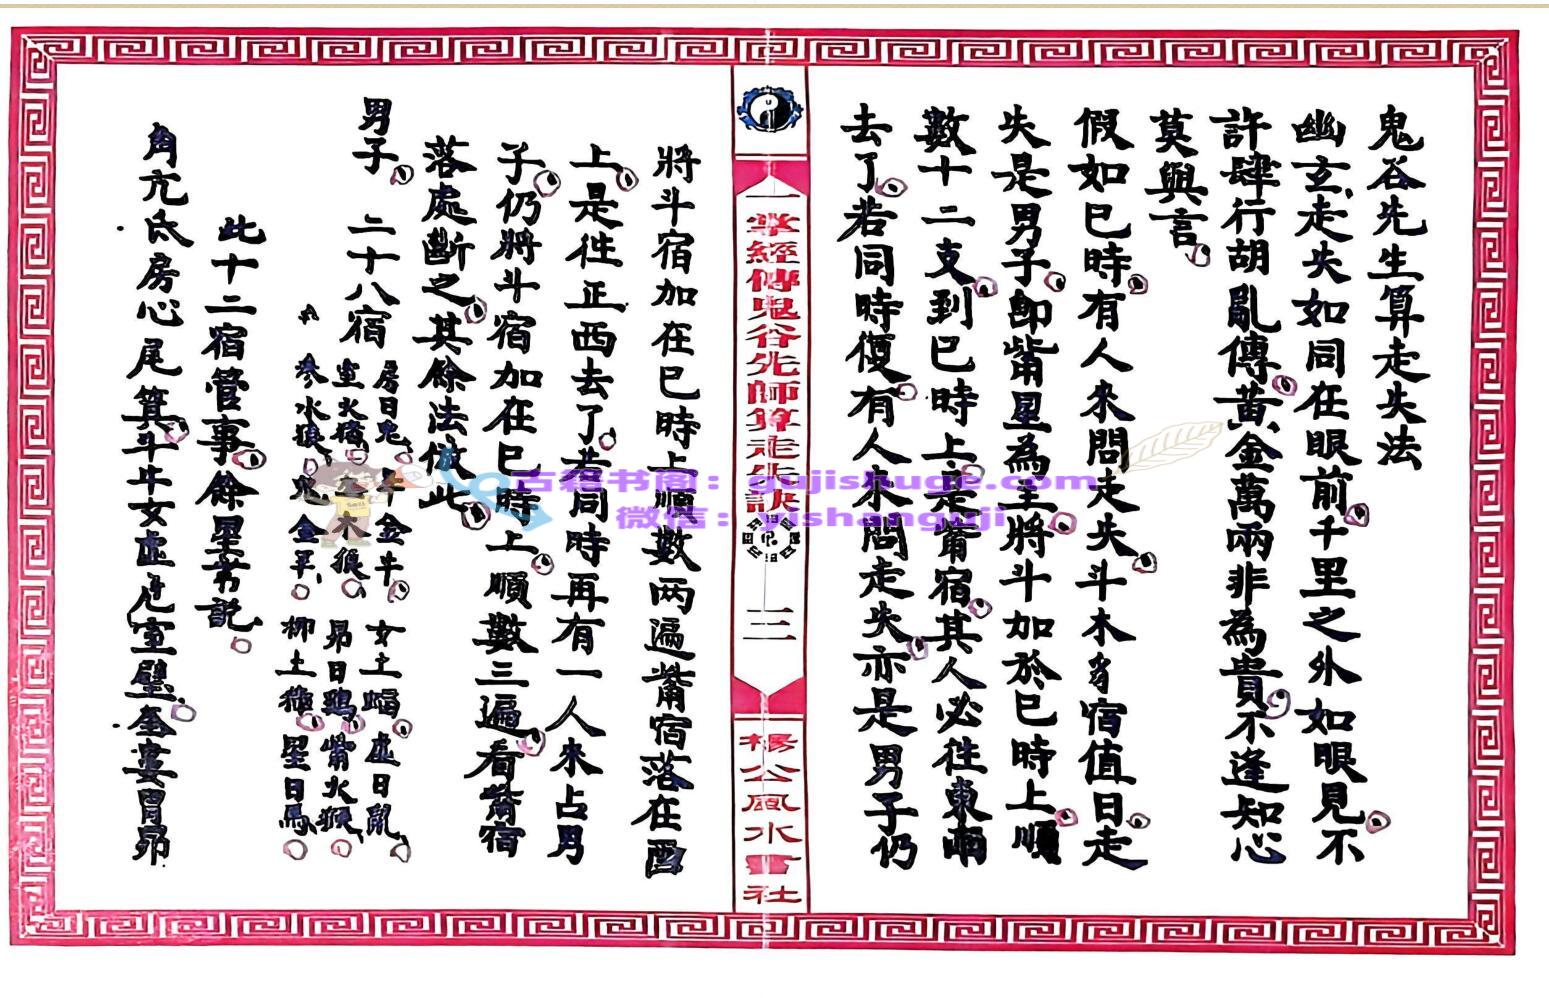 鬼谷先生算走失法
幽玄走失如同在眼前千里之外如眼見不
許肆行胡亂傳黃金萬兩非為貴不逢知心
莫與言
假如巳時有人來問走失斗木豸宿值日走
失是男子即觜星為主將斗加於巳時上順
數十二支到巳時上是觜宿其人必往東南
去了若同時復有人來問走失亦是男子仍
一掌經傳鬼谷先師算走失訣
三
楊公風水書社
將斗宿加在巳時上順數两遍觜宿落在酉
上是往正西去了若同時再有一人來占男
子仍將斗宿加在巳時上順數三遍看觜宿
落處斷之其餘法倣此
男子 二十八宿
房日兔 牛金牛 女土蝠 虛日鼠
室火豬 奎木狼 昴日鷄 觜火猴
參水猿 鬼金羊 柳土獐 星日馬
此十二宿管事餘星書說
角亢氐房心尾箕斗牛女虛危室壁奎婁胃昴
古籍书阁：gujishuge.com
微信：yishanguji